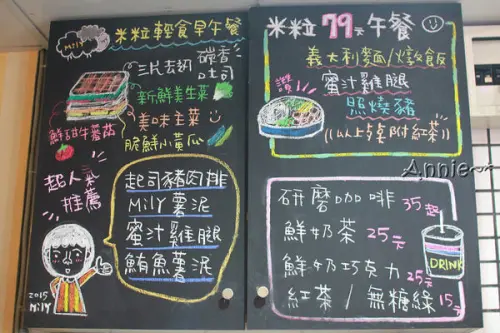 Mily
米粒輕食早午餐
三片去油
碳香吐司
新鮮美生菜
鮮甜牛蕃茄
美味主菜
脆鮮小黃瓜
超人氣推薦
起司豬肉排
Mily薯泥
蜜汁雞腿
鮪魚薯泥
2015
Mily
米粒79元午餐
義大利麵/燉飯
讚
蜜汁雞腿
照燒豬
((以上皆附紅茶))
Annie
研磨咖啡 35起
鮮奶茶 25元
鮮奶巧克力 25元
紅茶/無糖綠 15元
DRINK